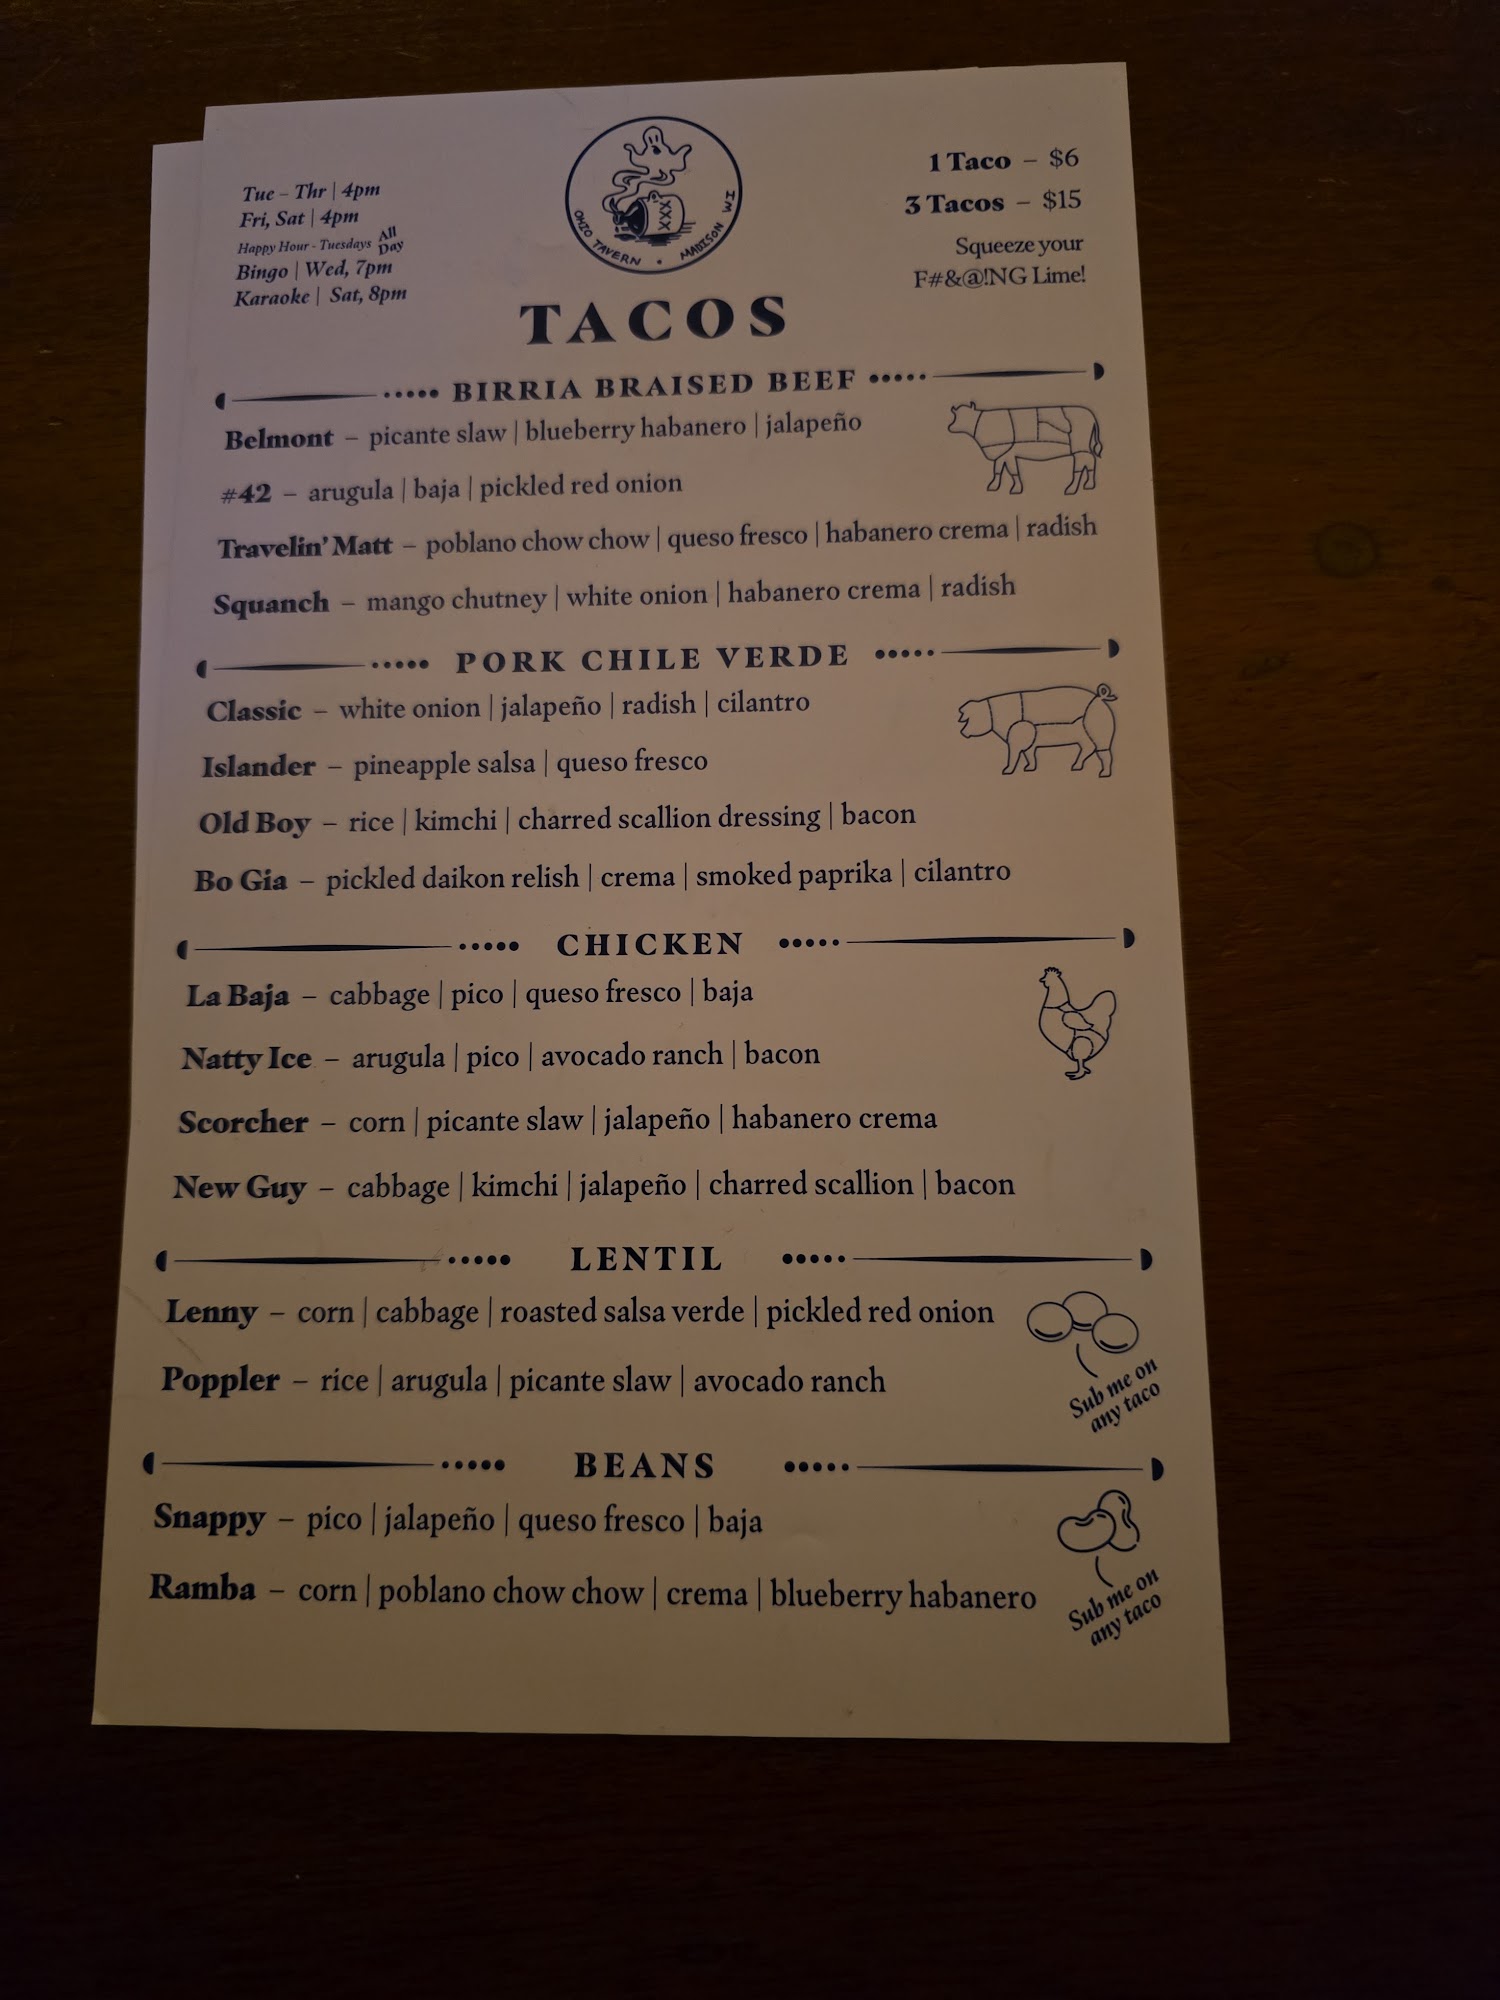 Tue – Thr | 4pm
Fri, Sat | 4pm
Happy Hour - Tuesdays All Day
Bingo | Wed, 7pm
Karaoke | Sat, 8pm
XXX
OHIO TAVERN • MADISON WI
1 Taco – $6
3 Tacos – $15
Squeeze your
F#&@!NG Lime!
TACOS
BIRRIA BRAISED BEEF
Belmont – picante slaw | blueberry habanero | jalapeño
#42 – arugula | baja | pickled red onion
Travelin' Matt – poblano chow chow | queso fresco | habanero crema | radish
Squanch – mango chutney | white onion | habanero crema | radish
PORK CHILE VERDE
Classic – white onion | jalapeño | radish | cilantro
Islander – pineapple salsa | queso fresco
Old Boy – rice | kimchi | charred scallion dressing | bacon
Bo Gia – pickled daikon relish | crema | smoked paprika | cilantro
CHICKEN
La Baja – cabbage | pico | queso fresco | baja
Natty Ice – arugula | pico | avocado ranch | bacon
Scorcher – corn | picante slaw | jalapeño | habanero crema
New Guy – cabbage | kimchi | jalapeño | charred scallion | bacon
LENTIL
Lenny – corn | cabbage | roasted salsa verde | pickled red onion
Poppler – rice | arugula | picante slaw | avocado ranch
Sub me on
any taco
BEANS
Snappy – pico | jalapeño | queso fresco | baja
Ramba – corn | poblano chow chow | crema | blueberry habanero
Sub me on
any taco